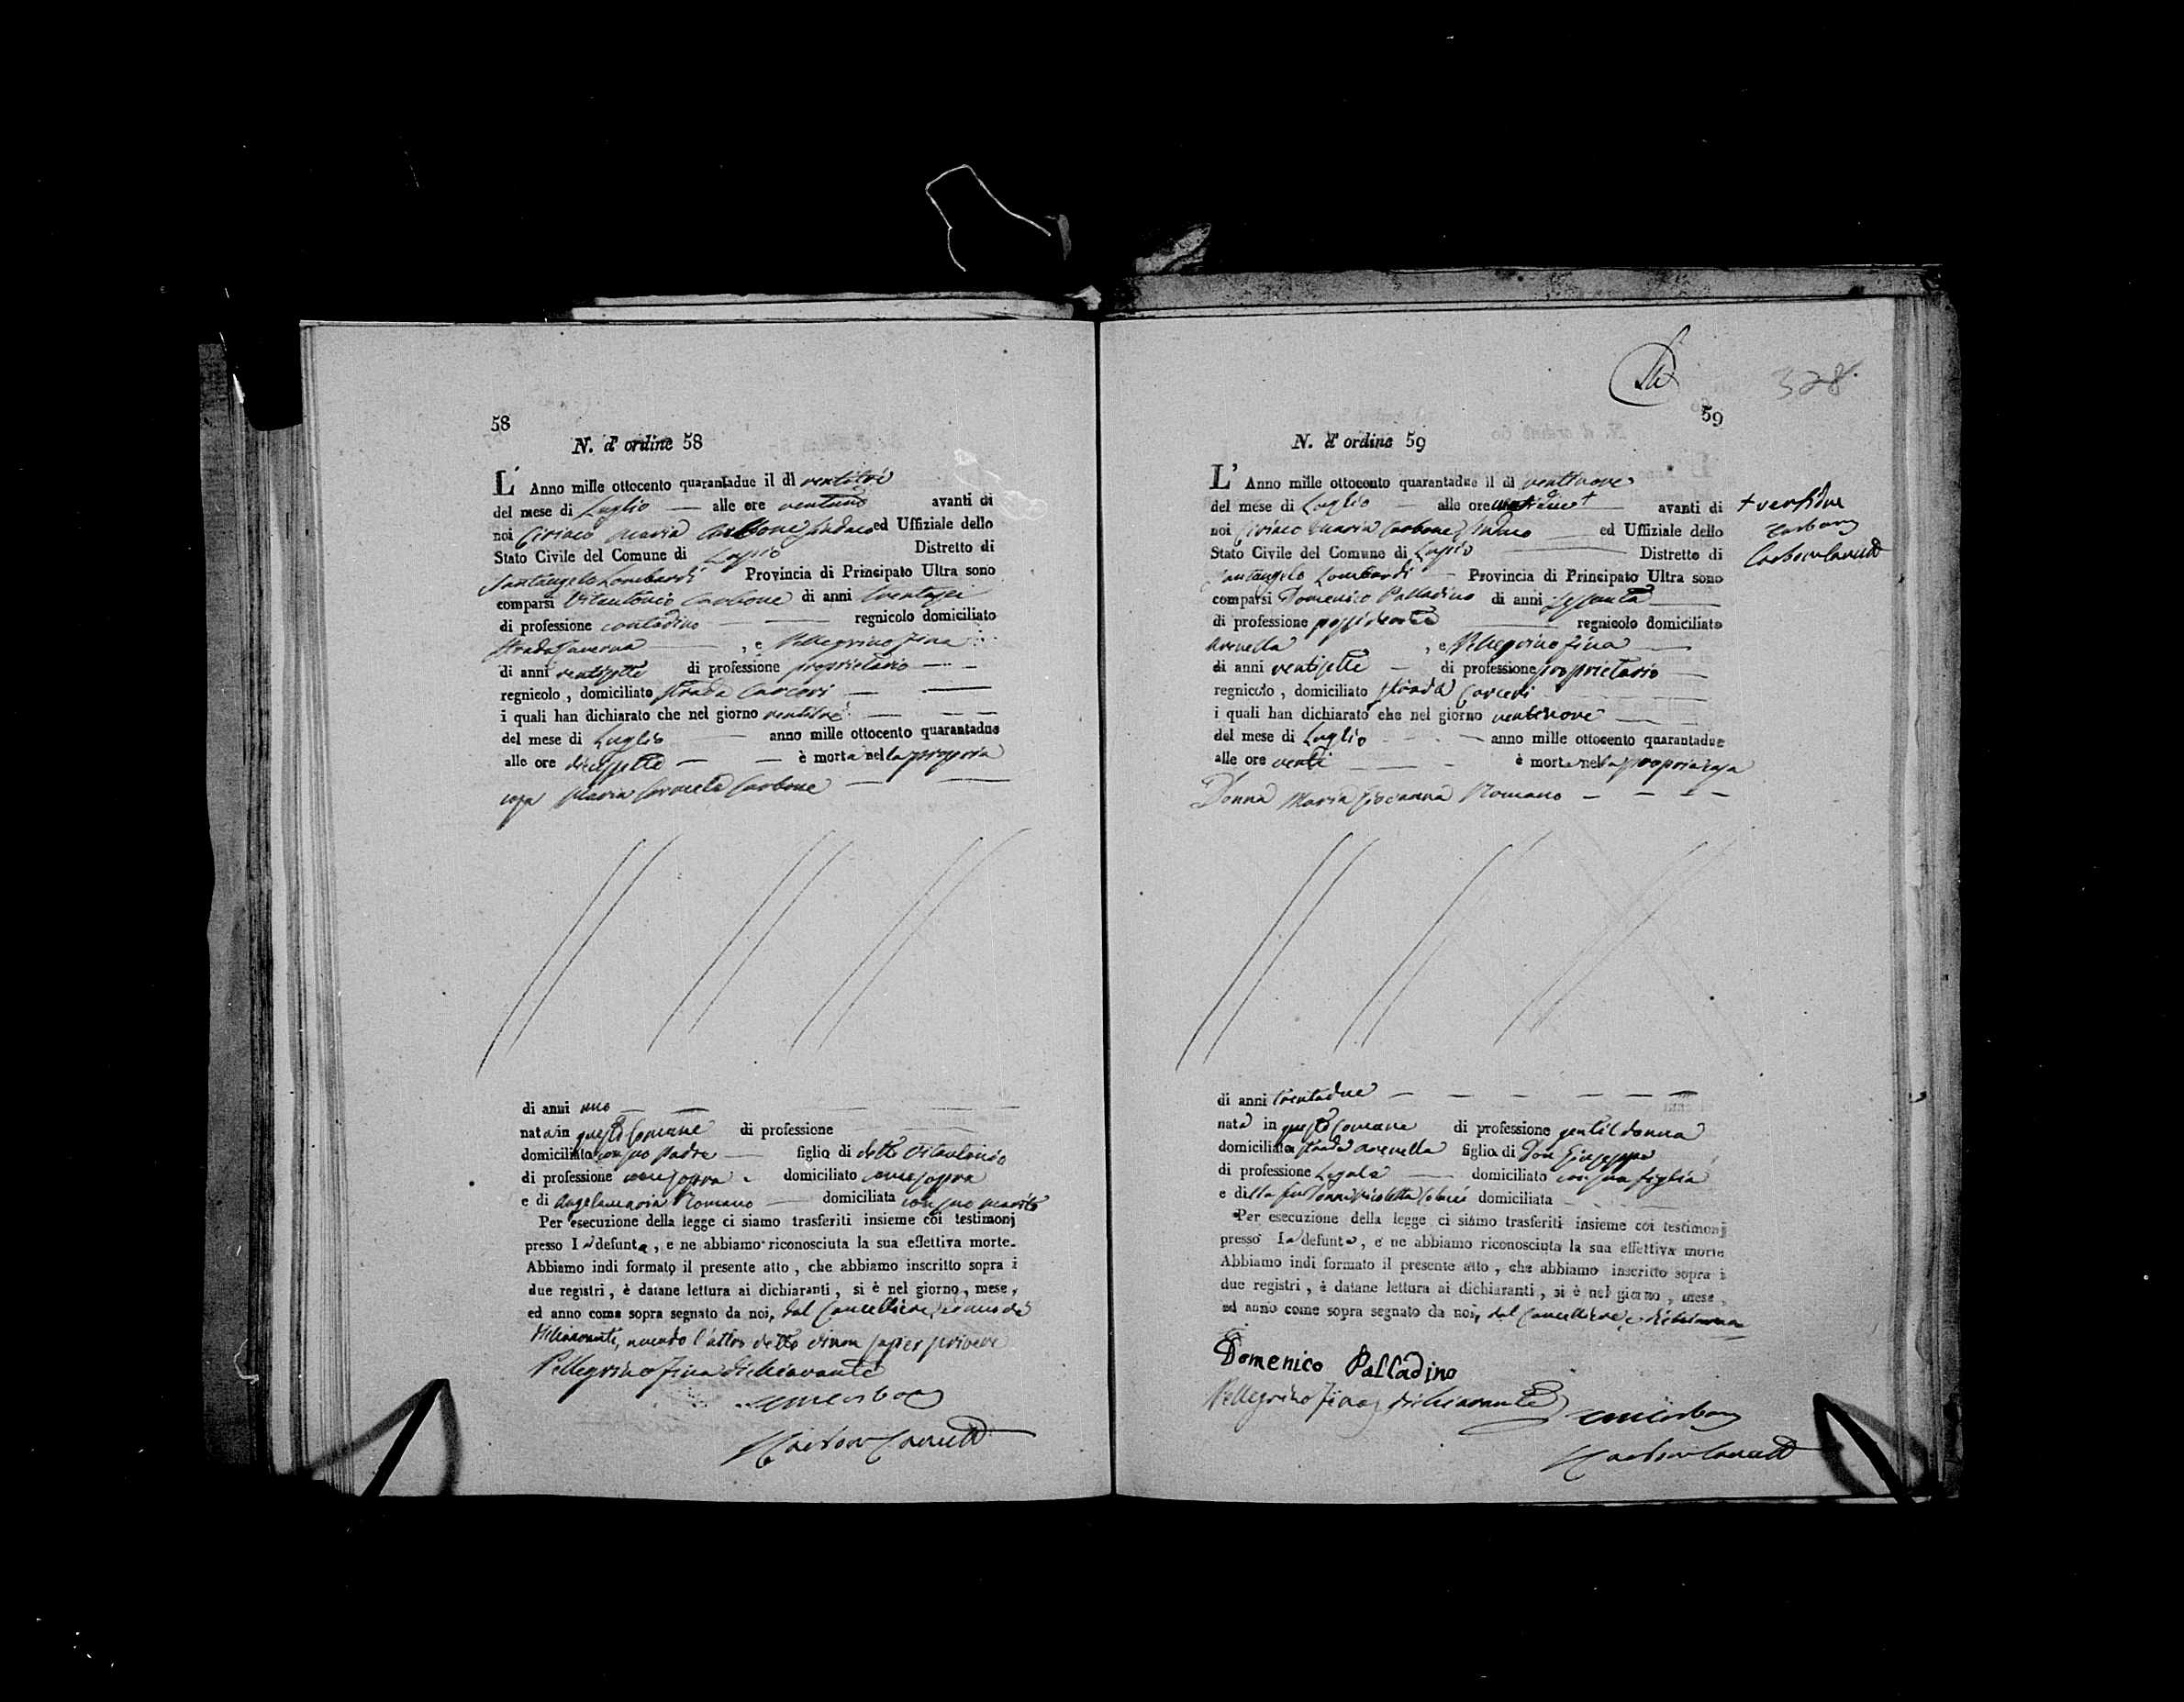 58
N. d'ordine 58
L' Anno mille ottocento quarantadue il dì ventitrè
del mese di Luglio alle ore ventuno avanti di
noi Ciriaco Maria Carbone Sindaco ed Uffiziale dello
Stato Civile del Comune di Lapio Distretto di
Santangelo Lombardi Provincia di Principato Ultra sono
comparsi Vitantonio Carbone di anni trentasei
di professione contadino regnicolo domiciliato
Strada Taverna , e Pellegrino Fina
di anni ventisette di professione proprietario
regnicolo , domiciliato strada Carceri
i quali han dichiarato che nel giorno ventitrè
del mese di Luglio anno mille ottocento quarantadue
alle ore diecisette è morta nella propria
casa Maria Carmela Carbone
di anni uno
nata in questo Comune di professione
domiciliata con suo Padre figlia di detto Vitantonio
di professione come sopra domiciliato come sopra
e di Angelamaria Romano domiciliata con suo marito
Per esecuzione della legge ci siamo trasferiti insieme coi testimonj
presso la defunta , e ne abbiamo riconosciuta la sua effettiva morte.
Abbiamo indi formato il presente atto , che abbiamo inscritto sopra i
due registri , è datane lettura ai dichiaranti , si è nel giorno , mese ,
ed anno come sopra segnato da noi, dal Cancelliere, ed uno de'
dichiaranti, avendo l'altro detto di non saper scrivere
Pellegrino Fina dichiarante
59
328.
N. d'ordine 59
L' Anno mille ottocento quarantadue il dì ventinove
del mese di Luglio alle ore + avanti di
noi Ciriaco Maria Carbone Sindaco ed Uffiziale dello
Stato Civile del Comune di Lapio Distretto di
Santangelo Lombardi Provincia di Principato Ultra sono
comparsi Domenico Palladino di anni sessanta
di professione possidente regnicolo domiciliato
Arenella , e Pellegrino Fina
di anni ventisette di professione proprietario
regnicolo , domiciliato strada Carceri
i quali han dichiarato che nel giorno ventinove
del mese di Luglio anno mille ottocento quarantadue
alle ore venti è morta nella propria casa
Donna Maria Giovanna Romano
di anni trentadue
nata in questo Comune di professione gentildonna
domiciliata strada Arenella figlia di Don Giuseppe
di professione Legale domiciliato con sua figlia
e della fu Donna Nicoletta domiciliata
Per esecuzione della legge ci siamo trasferiti insieme coi testimonj
presso la defunta , e ne abbiamo riconosciuta la sua effettiva morte
Abbiamo indi formato il presente atto , che abbiamo inscritto sopra i
due registri , è datane lettura ai dichiaranti , si è nel giorno , mese ,
ed anno come sopra segnato da noi, dal Cancelliere, e
Domenico Palladino
Pellegrino Fina dichiarante
+ ventidue